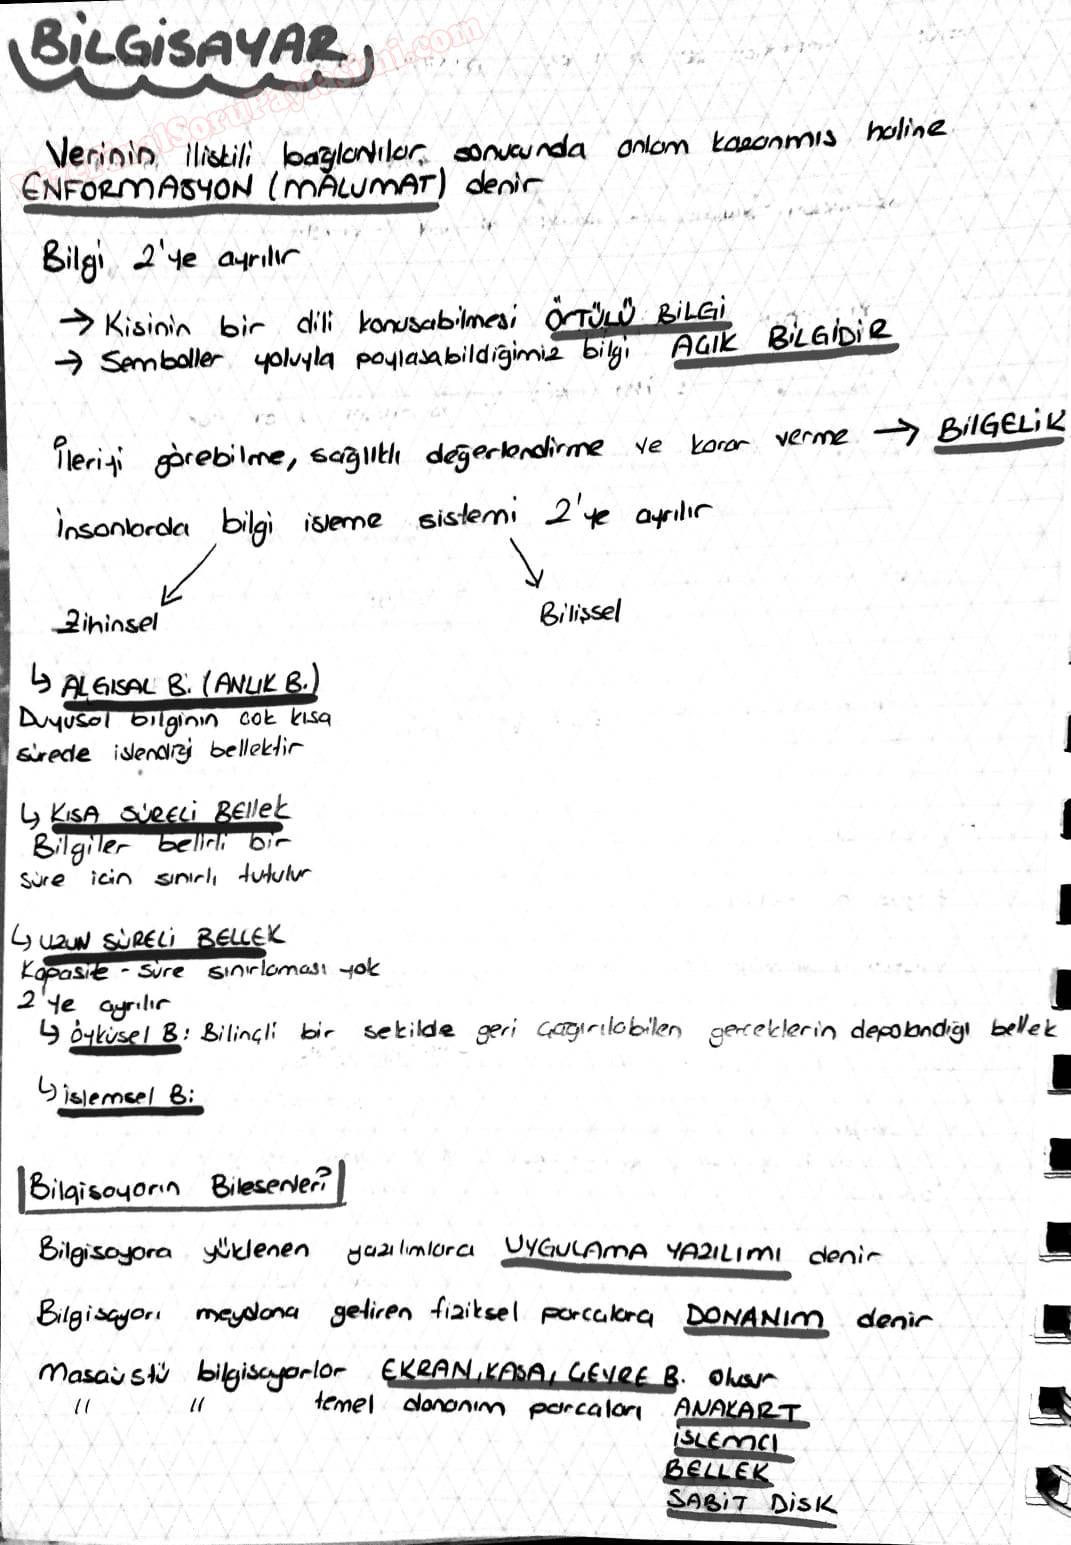 BİLGİSAYAR
Verinin ilişkili bağlantılar sonucunda anlam kazanmıs haline
ENFORMASYON (MÂLUMAT) denir
Bilgi 2'ye ayrılır
→ Kisinin bir dili konusabilmesi ÖRTÜLÜ BİLGİ
→ Semboller yoluyla paylasabildiğimiz bilgi AÇIK BİLGİDİR
İleriyi görebilme, sağlıklı değerlendirme ve karar verme → BİLGELİK
İnsanlarda bilgi isleme sistemi 2'ye ayrılır
Zihinsel Bilişsel
↳ ALGISAL B. (ANLIK B.)
Duyusal bilginin cok kısa
sürede islendiği bellektir
↳ KISA SÜRELİ BEllek
Bilgiler belirli bir
süre icin sınırlı tutulur
↳ UZUN SÜRELİ BELLEK
Kapasite - süre sınırlaması yok
2'ye ayrılır
↳ Öyküsel B: Bilinçli bir sekilde geri çağırılabilen gerceklerin depolandığı bellek
↳ islemsel B:
Bilgisayarın Bilesenleri?
Bilgisayara yüklenen yazılımlara UYGULAMA YAZILIMI denir
Bilgisayarı meydana getiren fiziksel parcalara DONANIM denir
Masaüstü bilgisayarlar EKRAN, KASA, ÇEVRE B. olusur
" " temel donanım parcaları ANAKART
İSLEMCİ
BELLEK
SABİT DİSK